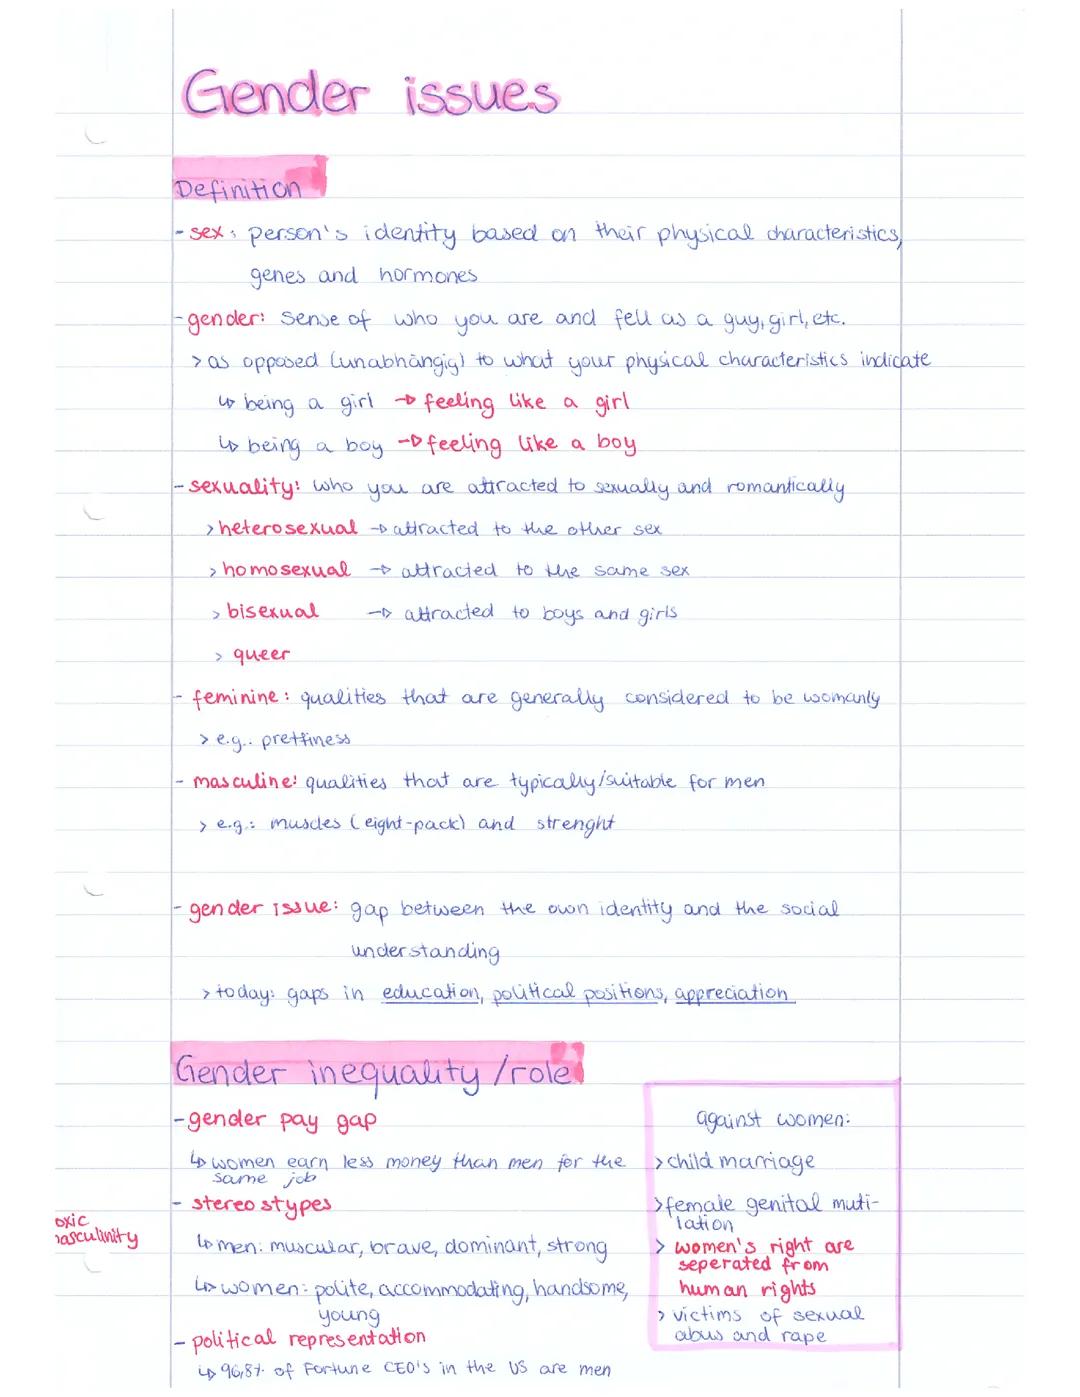 Gender issues
Definition
- sex: person's identity based on their physical characteristics,
genes and hormones
- gender: Sense of who you are and fell as a guy, girl, etc.
> as opposed (unabhängig) to what your physical characteristics indicate
↳ being a girl → feeling like a girl
↳ being a boy → feeling like a boy
- sexuality: who you are attracted to sexually and romantically
> heterosexual → attracted to the other sex
> homosexual → attracted to the same sex
> bisexual → attracted to boys and girls
> queer
- feminine: qualities that are generally considered to be womanly
> e.g.: prettiness
- masculine: qualities that are typically/suitable for men
> e.g.: muscles (eight-pack) and strenght
- gender issue: gap between the own identity and the social
understanding
> today: gaps in education, political positions, appreciation
Gender inequality/role
- gender pay gap
↳ women earn less money than men for the
same job
- stereostypes
oxic
masculinity
↳ men: muscular, brave, dominant, strong
↳ women: polite, accommodating, handsome,
young
- political representation
↳ 96,8% of Fortune CEO's in the US are men
against women:
> child marriage
> female genital muti-
lation
> women's right are
seperated from
human rights
> victims of sexual
abus and rape